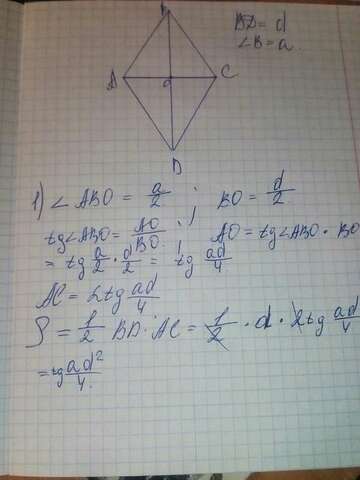 B
BD = d
∠B = a
A
O
C
D
1) ∠ABO = a/2 ; BO = d/2
tg∠ABO = AO/BO ; AO = tg∠ABO · BO
= tg a/2 · d/2 = tg ad/4
AC = 2tg ad/4
S = 1/2 BD · AC = 1/2 · d · 2tg ad/4
= tg ad²/4.